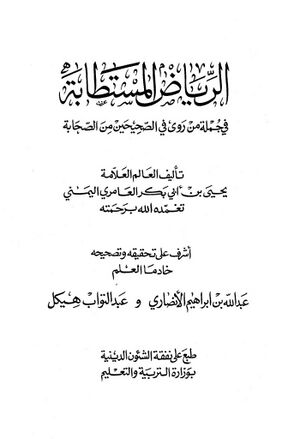 الرياض المستطابة
في جملة من روى في الصحيحين من الصحابة
تأليف العالم العلامة
يحيى بن أبي بكر العامري اليمني
تغمده الله برحمته
أشرف على تحقيقه وتصحيحه
خادما العلم
عبدالله بن ابراهيم الأنصاري و عبدالتواب هيكل
طبع على نفقة الشئون الدينية
بوزارة التربية والتعليم